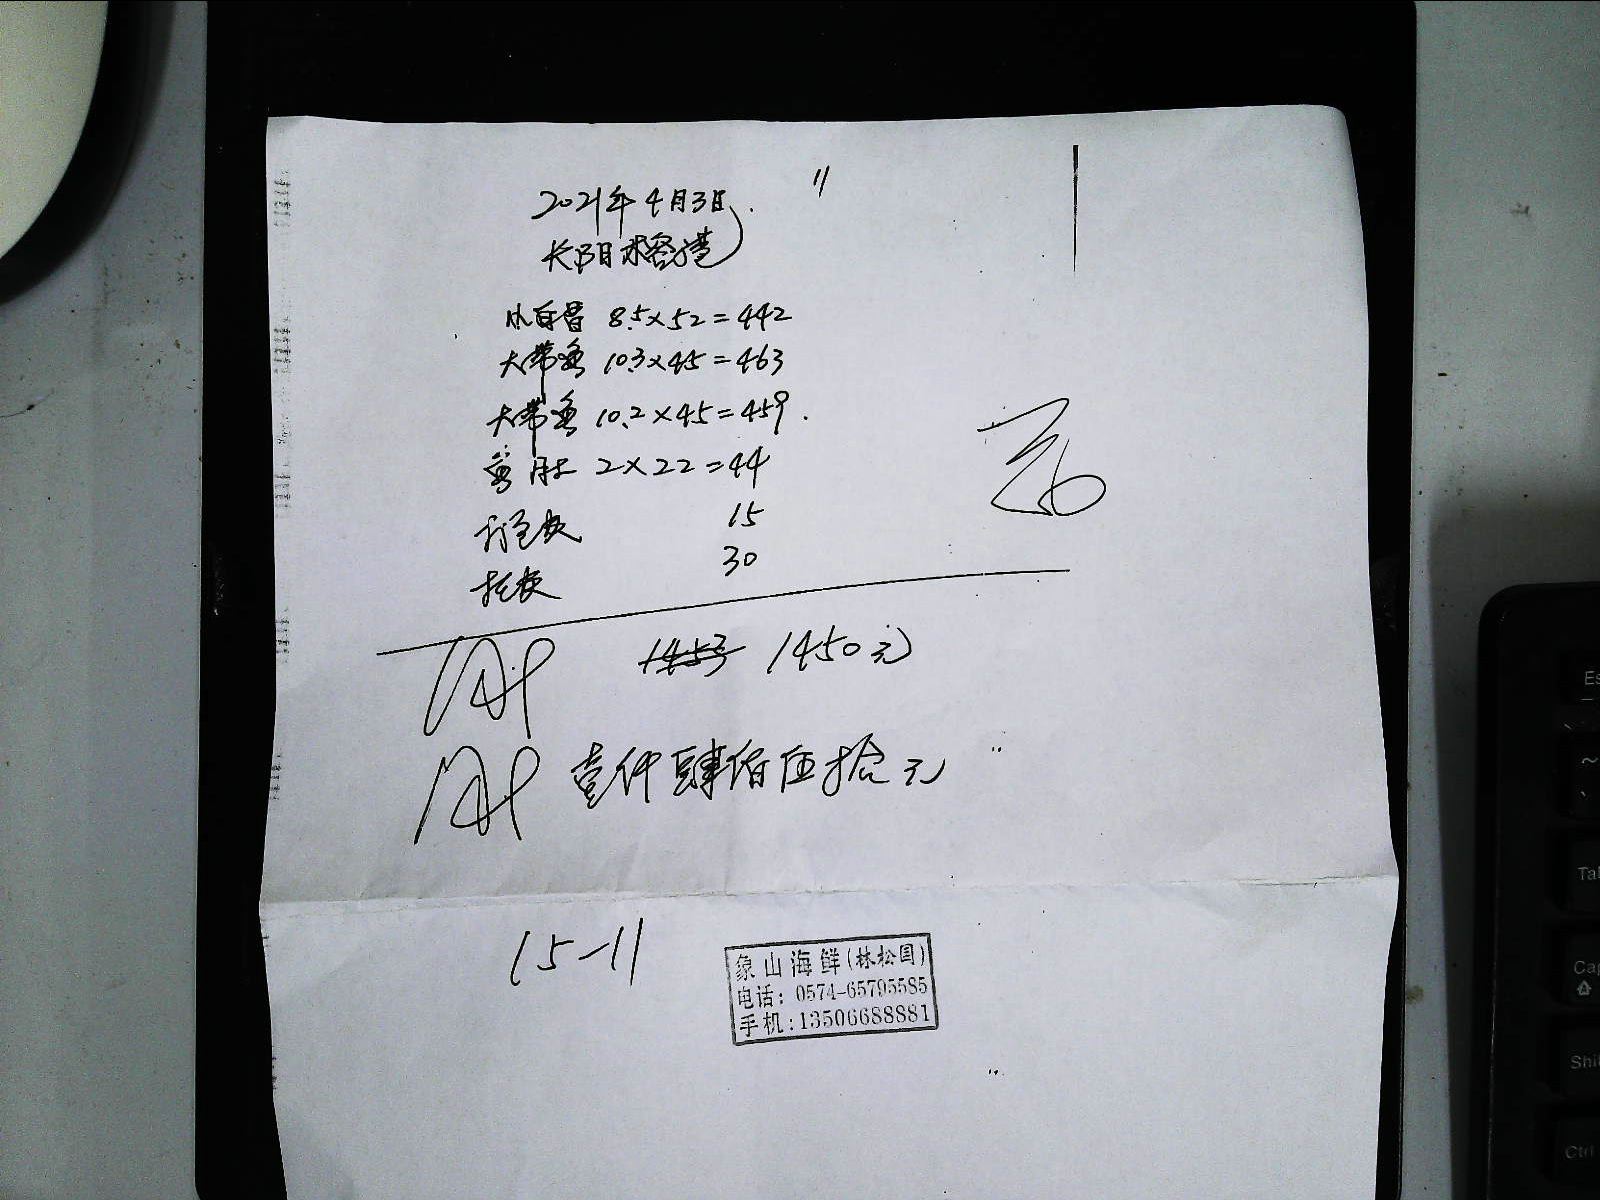 2021年4月3日
长阳
小白 8.5×52=442
大带鱼 10.3×45=463
大带鱼 10.2×45=459.
2×22=44
打包费 15
托费 30
1453 1450元
壹仟肆佰伍拾元
15-11
象山海鲜(林松国)
电话: 0574-65795585
手机:13506688881
Es
~
Tab
Cap
Shi
Ctrl